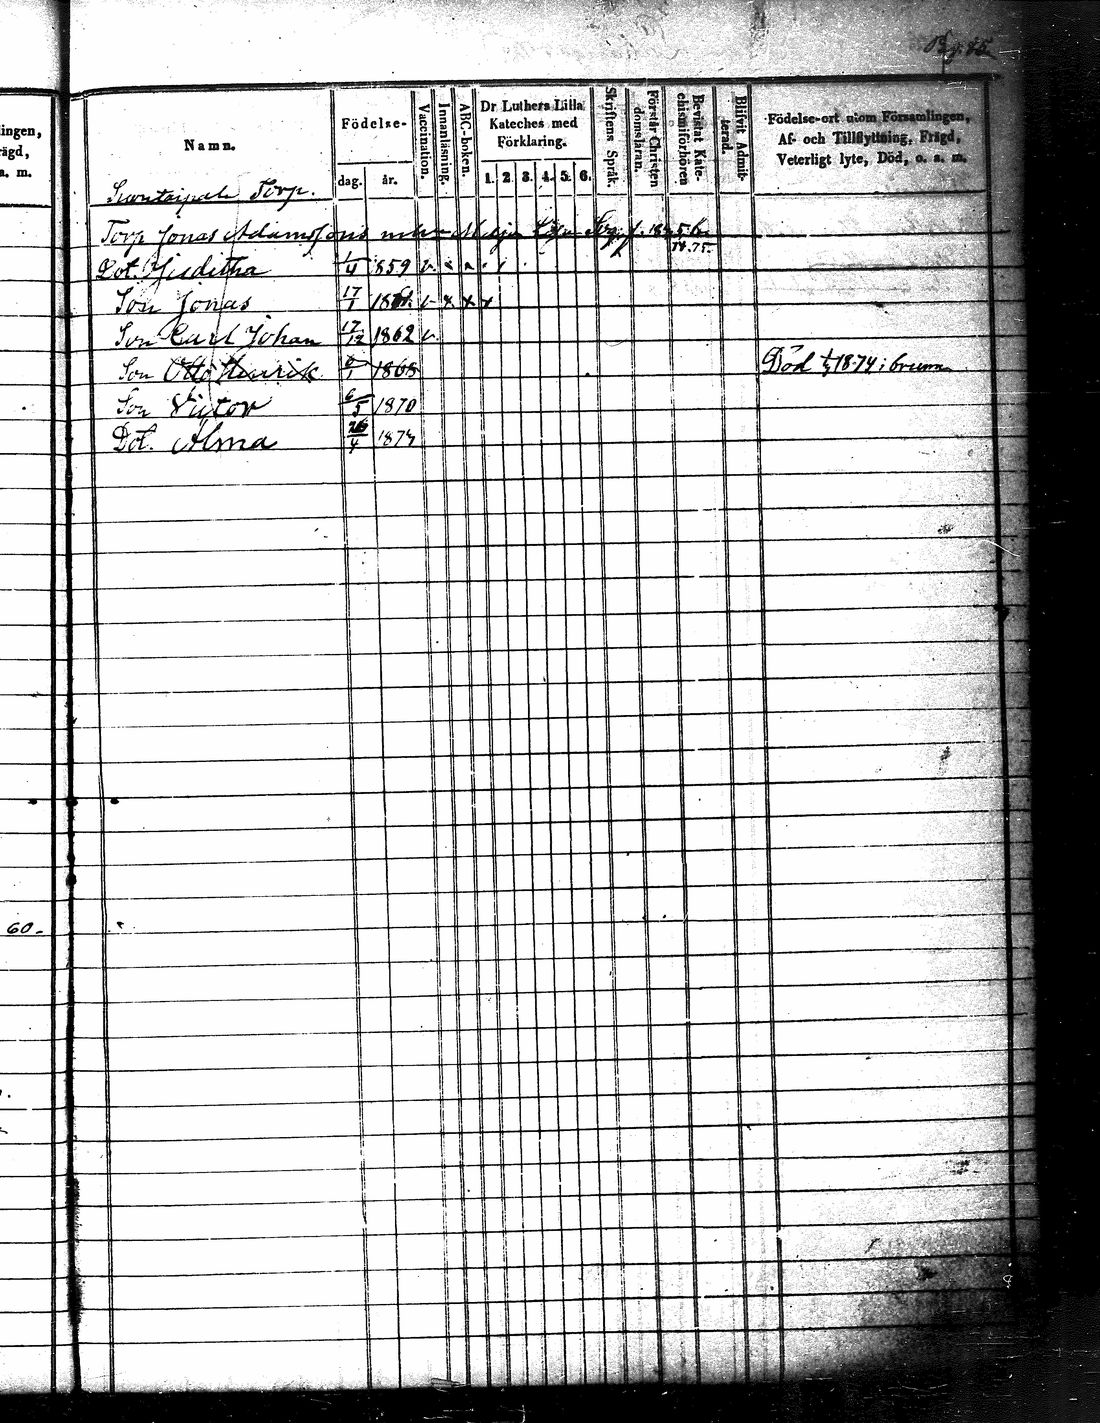 lingen,
rägd,
a. m.
60.
Namn.
Födelse-
dag.
år.
Vaccination.
Innanläsning.
ABC-boken.
Dr Luthers Lilla
Kateches med
Förklaring.
1. 2. 3. 4. 5. 6.
Skriftens Språk.
Förstår Christen
domsläran.
Bevistat Kate-
chismiförhören
Blifvit Admit-
terad.
Födelse-ort utom Församlingen,
Af- och Tillflyttning, Frägd,
Veterligt lyte, Död, o. s. m.
Torp.
Torp Jonas Adamssons
18.75.
Dot. Juditha 1/4 1859 v
Son Jonas 17/1 v x x x
Son Carl Johan 17/12 1862 v.
Son Otto Henrik 1868 Död 18-74 i
Son Victor 6/5 1870
Dot. Alma 26/4 1874